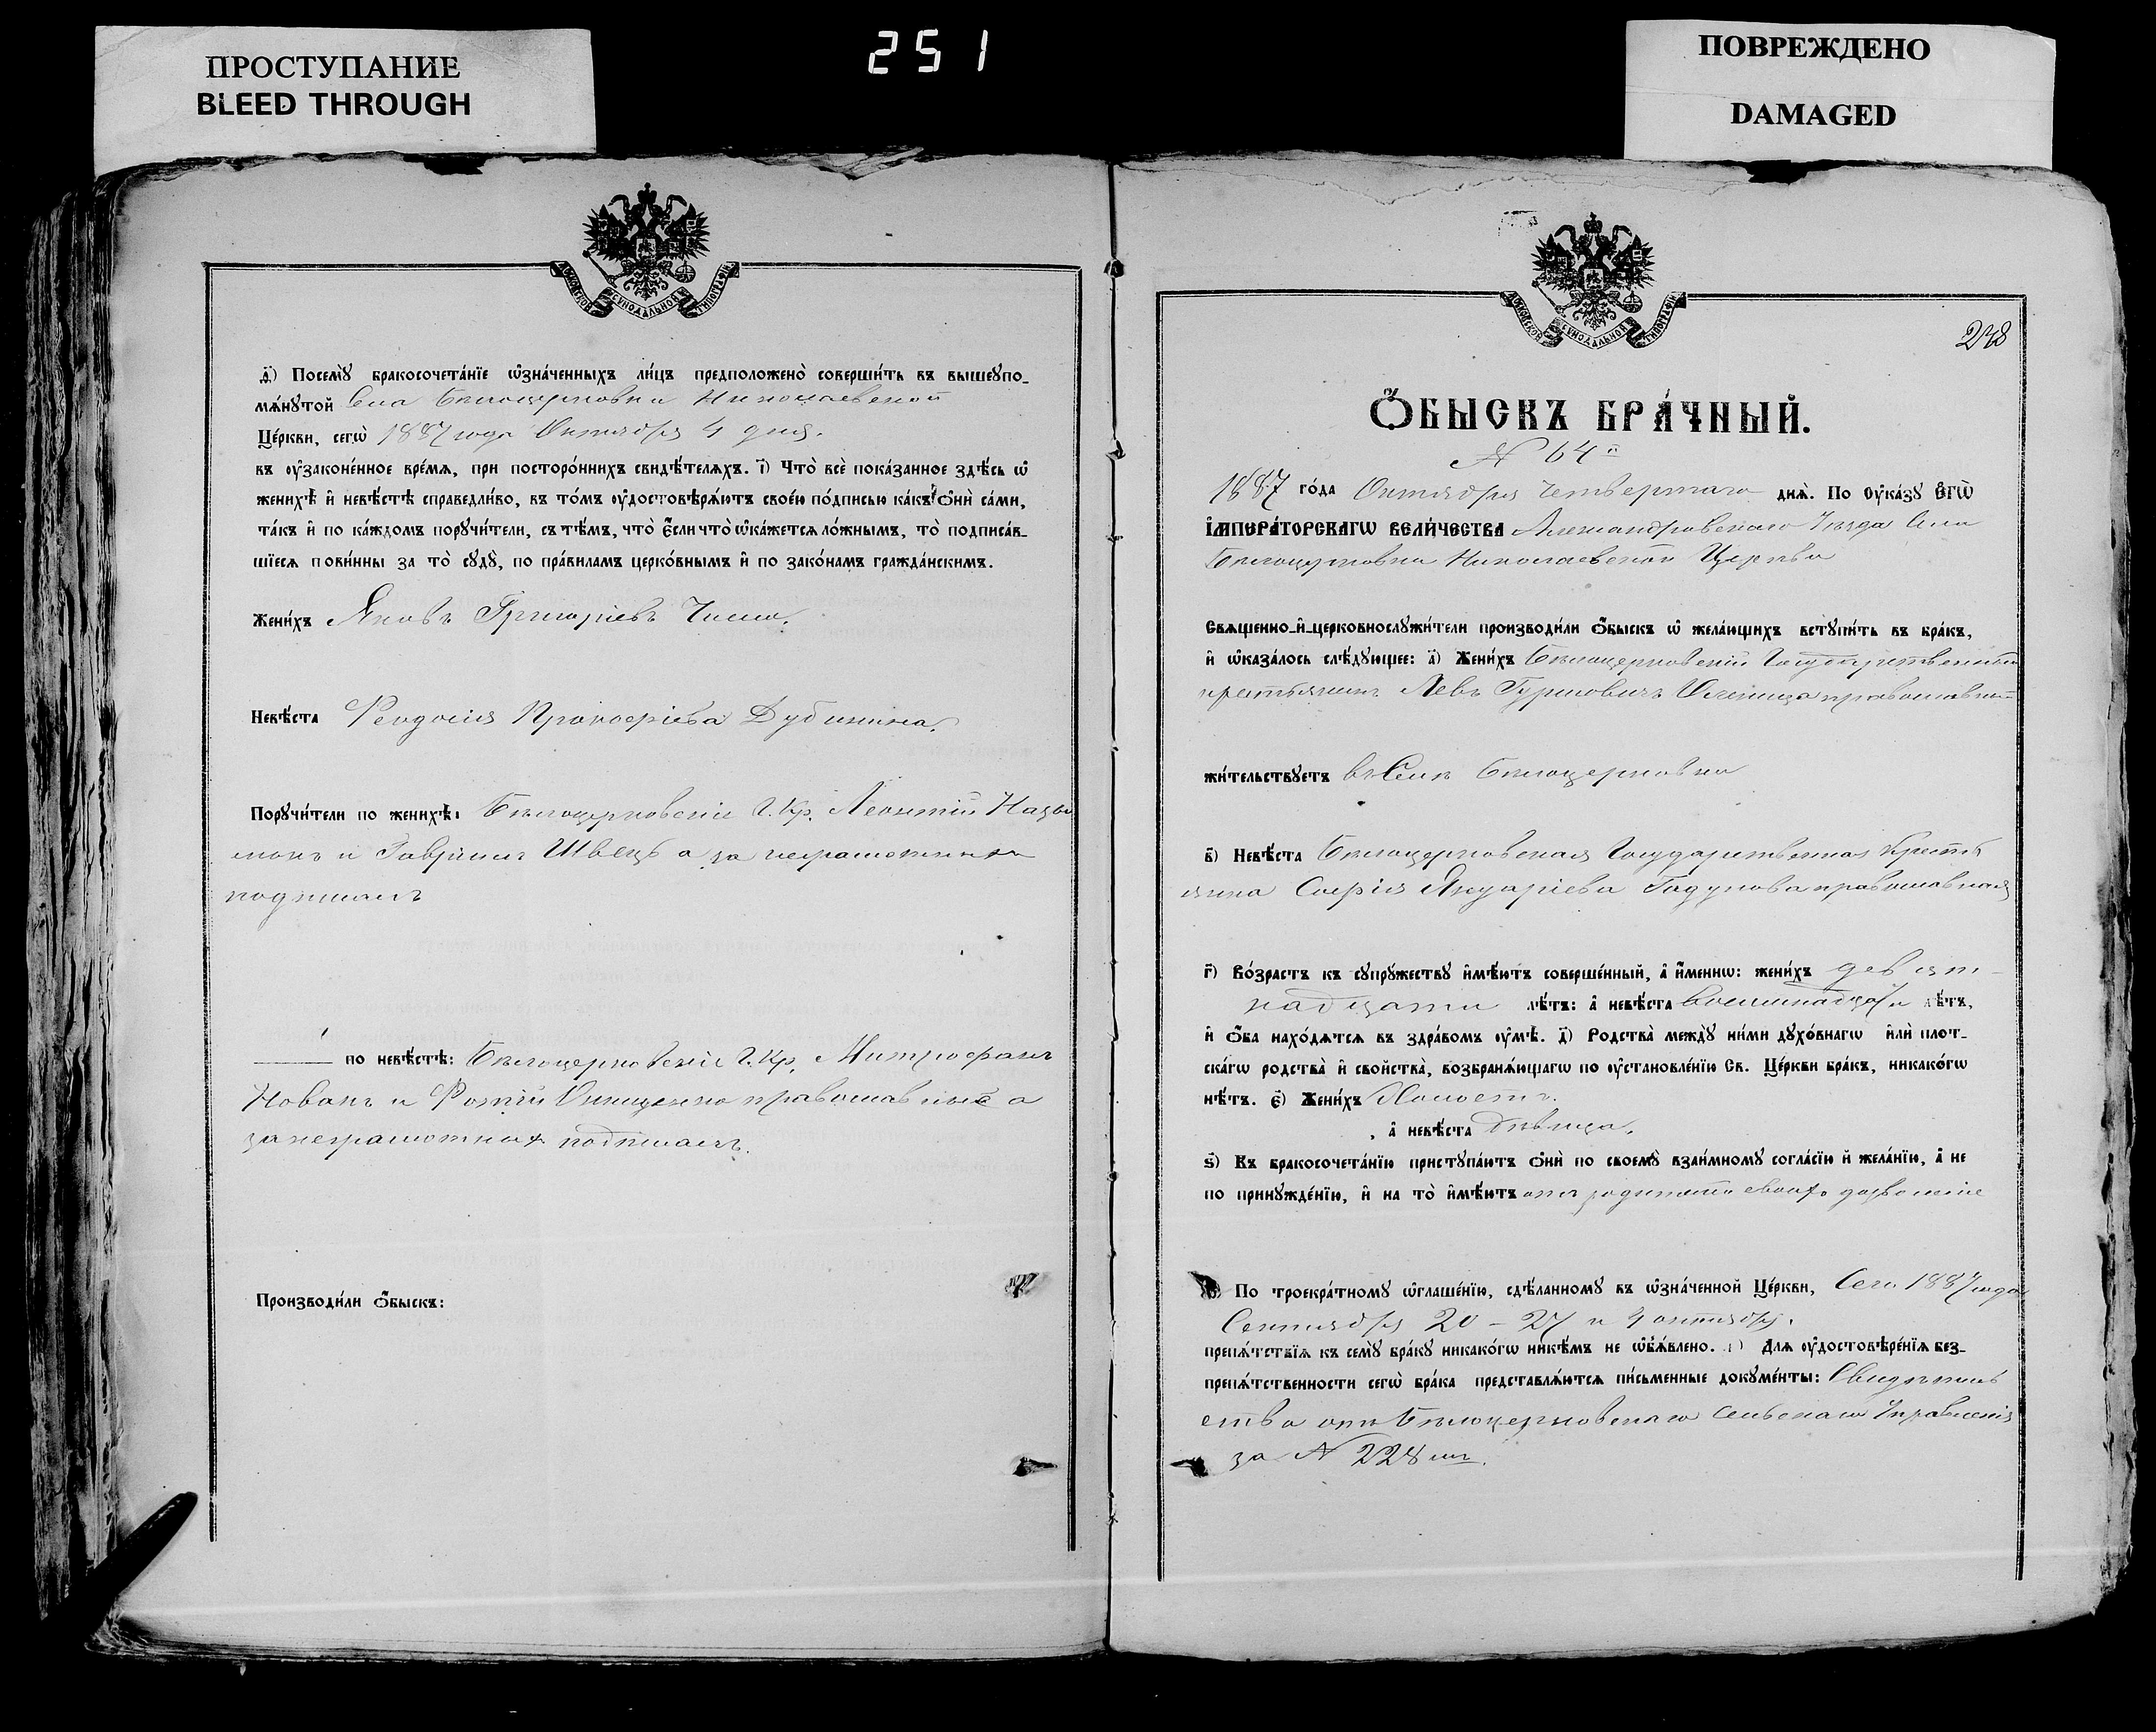 ПРОСТУПАНИЕ
BLEED THROUGH
251
ПОВРЕЖДЕНО
DAMAGED
МОСКОВСКОЙ СѴНОДАЛЬНОЙ ТИПОГРАФІИ
Посемꙋ̀ бракосочета́нїе ѡ҆зна́ченныхъ ли́цъ предположено̀ соверши́ть въ вышеꙋпо-
мѧ́нꙋтой Села Бѣлоцерковки Николаевской
Це́ркви, сегѡ̀ 1887 года Октября 4 дня.
въ ᲂу҆зако́ненное вре́мѧ, при посторо́ннихъ свидѣ́телѧхъ. і҃) Что̀ всѐ пока́занное здѣ́сь ѡ҆
женихѣ̀ и҆ невѣ́стѣ справедли́во, въ то́мъ ᲂу҆достовѣрѧ́ютъ свое́ю по́дписью ка́къ ѻ҆нѝ са́ми,
та́къ и҆ по ка́ждомъ порꙋчи́тели, съ тѣ́мъ, что̀ є҆́сли что̀ ѡ҆ка́жетсѧ ло́жнымъ, то̀ подписа́в-
шїесѧ пови́нны за то̀ сꙋдꙋ̀, по пра́виламъ церко́внымъ и҆ по зако́намъ гражда́нскимъ.
Жени́хъ Яковъ Григоріевъ
Невѣ́ста Феодосія Прокофіева Дубинина.
Порꙋчи́тели по женихѣ̀: Бѣлоцерковскіе Г. Кр. Леонтій
и Гавріилъ Швецъ а за неграмотныхъ
подписалъ
по невѣ́стѣ: Бѣлоцерковскіе Г. Кр. Митрофанъ
Новакъ и Онищенко православные а
за неграмотныхъ подписалъ.
Производи́ли ѻ҆́быскъ:
МОСКОВСКОЙ СѴНОДАЛЬНОЙ ТИПОГРАФІИ
248
Ѻ҆́БЫСКЪ БРА́ЧНЫЙ.
№ 64й
1887 го́да Октября четвертаго днѧ̀. По ᲂу҆ка́зꙋ Є҆ГѠ̀
І҆МПЕРА́ТОРСКАГѠ ВЕЛИ́ЧЕСТВА Александровскаго Уѣзда Села
Бѣлоцерковки Николаевской Церкви
Свѧще́нно-и҆-церковнослꙋжи́тели производи́ли ѻ҆́быскъ ѡ҆ жела́ющихъ встꙋпи́ть въ бра́къ,
и҆ ѡ҆каза́лось слѣ́дꙋющее: а҃) Жени́хъ Бѣлоцерковскій Государственный
крестьянинъ Левъ Гурьевичъ православный
жи́тельствꙋетъ въ Селѣ Бѣлоцерковки
в҃) Невѣ́ста Бѣлоцерковская Государственная Кресть
янка Софія Януаріева Гадунова православная
г҃) Во́зрастъ къ сꙋпрꙋ́жествꙋ и҆мѣ́ютъ соверше́нный, а҆ и҆́меннѡ: жени́хъ девят-
надцати лѣ́тъ: а҆ невѣ́ста восемнадцати лѣ́тъ,
и҆ ѻ҆́ба нахо́дѧтсѧ въ здра́вомъ ᲂу҆мѣ̀. д҃) Родства̀ междꙋ̀ ни́ми дꙋхо́внагѡ и҆лѝ плот-
ска́гѡ родства̀ и҆ сво́йства, возбранѧ́ющагѡ по ᲂу҆становле́нїю Св. Це́ркви бра́къ, никако́гѡ
нѣ́тъ. є҃) Жени́хъ Холостъ.
а҆ невѣ́ста дѣвица.
ѕ҃) Къ бракосочета́нїю пристꙋпа́ютъ ѻ҆нѝ по своемꙋ̀ взаи́мномꙋ согла́сїю и҆ жела́нїю, а҆ не
по принꙋжде́нїю, и҆ на то̀ и҆мѣ́ютъ отъ родителей своихъ дозволеніе
По троекра́тномꙋ ѡ҆глаше́нїю, сдѣ́ланномꙋ въ ѡ҆зна́ченной Це́ркви, Сего 1887 года
Сентября 20 – 27 и 4 октября.
препѧ́тствїѧ къ семꙋ̀ бра́кꙋ никако́гѡ никѣ́мъ не ѡ҆б̾ѧ́влено. Длѧ ᲂу҆достовѣре́нїѧ без-
препѧ́тственности сегѡ̀ бра́ка представлѧ́ютсѧ пи́сьменные докꙋме́нты: Свидѣтель
ство отъ Бѣлоцерковскаго сельскаго Управленія
за № 228 мъ.